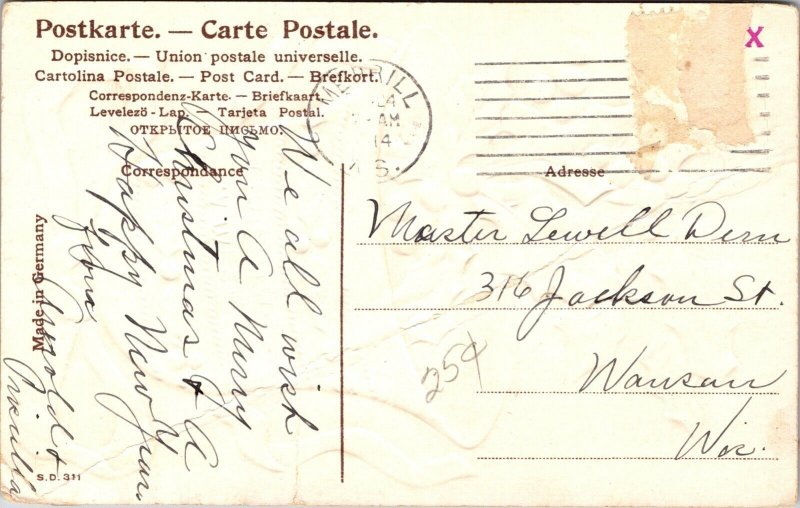 Postkarte. — Carte Postale.
Dopisnice. — Union postale universelle.
Cartolina Postale. — Post Card. — Brefkort.
Correspondenz-Karte. — Briefkaart.
Levelező-Lap. — Tarjeta Postal.
ОТКРЫТОЕ ПИСЬМО.
Correspondance
Adresse
MERRILL
AM
14
X
We all wish
you A Merry
Christmas & A
Happy New Year
from
Arnold &
Priscilla
Master Lewell Dern
316 Jackson St.
Wausau
Wis.
25¢
Made in Germany
S.D. 311